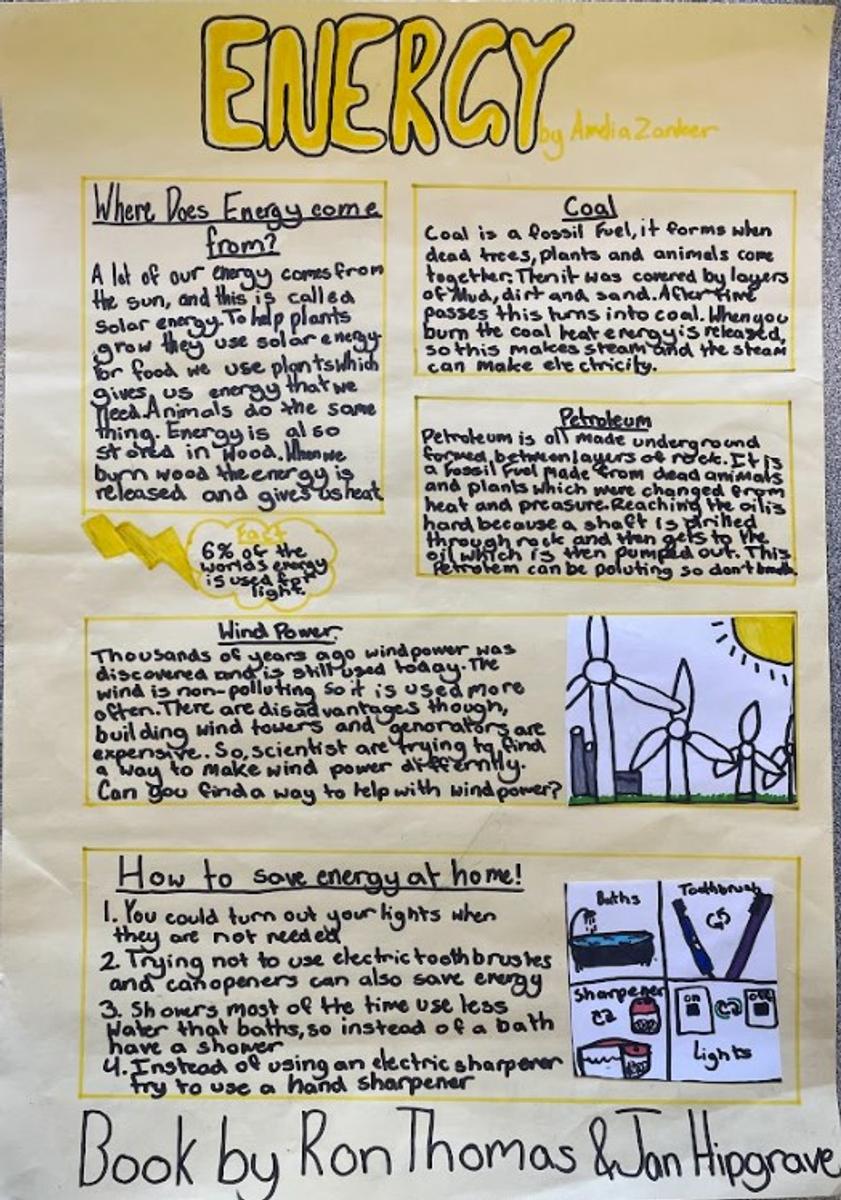 ENERGY
by Amelia Zanker
Where Does Energy come
from?
A lot of our energy comes from
the sun, and this is called
solar energy. To help plants
grow they use solar energy.
For food we use plants which
gives us energy that we
need. Animals do the same
thing. Energy is also
stored in wood. When we
burn wood the energy is
released and gives us heat
Fact
6% of the
worlds energy
is used for
light.
Coal
Coal is a fossil Fuel, it forms when
dead trees, plants and animals come
together. Then it was covered by layers
of Mud, dirt and sand. After time
passes this turns into coal. When you
burn the coal heat energy is released,
so this makes steam and the steam
can make electricity.
Petroleum
Petroleum is oil made underground
formed between layers of rock. It is
a Fossil Fuel made from dead animals
and plants which were changed from
heat and preasure. Reaching the oil is
hard because a shaft is drilled
through rock and then gets to the
oil which is then pumped out. This
Petrolem can be poluting so don't
Wind Power
Thousands of years ago wind power was
discovered and is still used today. The
wind is non-polluting so it is used more
often. There are disadvantages though,
building wind towers and genorators are
expensive. So, scientist are trying to find
a way to make wind power differntly.
Can you find a way to help with wind power?
How to save energy at home!
1. You could turn out your lights when
they are not needed
2. Trying not to use electric toothbrushes
and canopeners can also save energy
3. Showers most of the time use less
Water that baths, so instead of a bath
have a shower
4. Instead of using an electric sharpener
try to use a hand sharpener
Baths
Toothbrush
Sharpener
on
off
Lights
Book by Ron Thomas & Jan Hipgrave